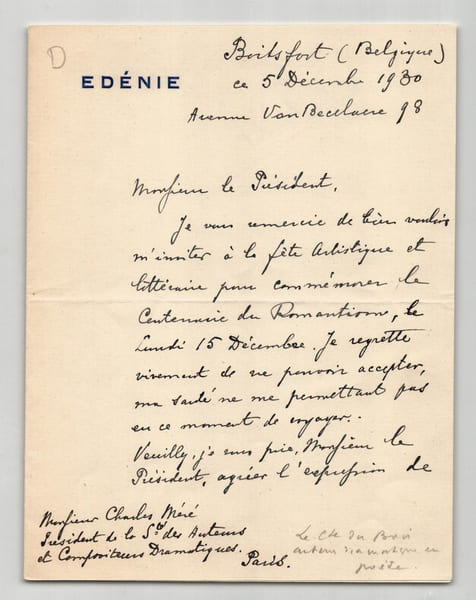 D
EDÉNIE
Boitsfort (Belgique)
ce 5 Décembre 1930
Avenue Van Becelaere 98
Monsieur le Président,
Je vous remercie de bien vouloir
m'inviter à la fête Artistique et
littéraire pour commémorer le
Centenaire du Romantisme, le
Lundi 15 Décembre. Je regrette
vivement de ne pouvoir accepter,
ma santé ne me permettant pas
en ce moment de voyager.
Veuillez, je vous prie, Monsieur le
Président, agréer l'expression de
Monsieur Charles Méré
Président de la Sté des Auteurs
et Compositeurs Dramatiques.
Paris.
Le Cte du Bois
auteur dramatique
poète.